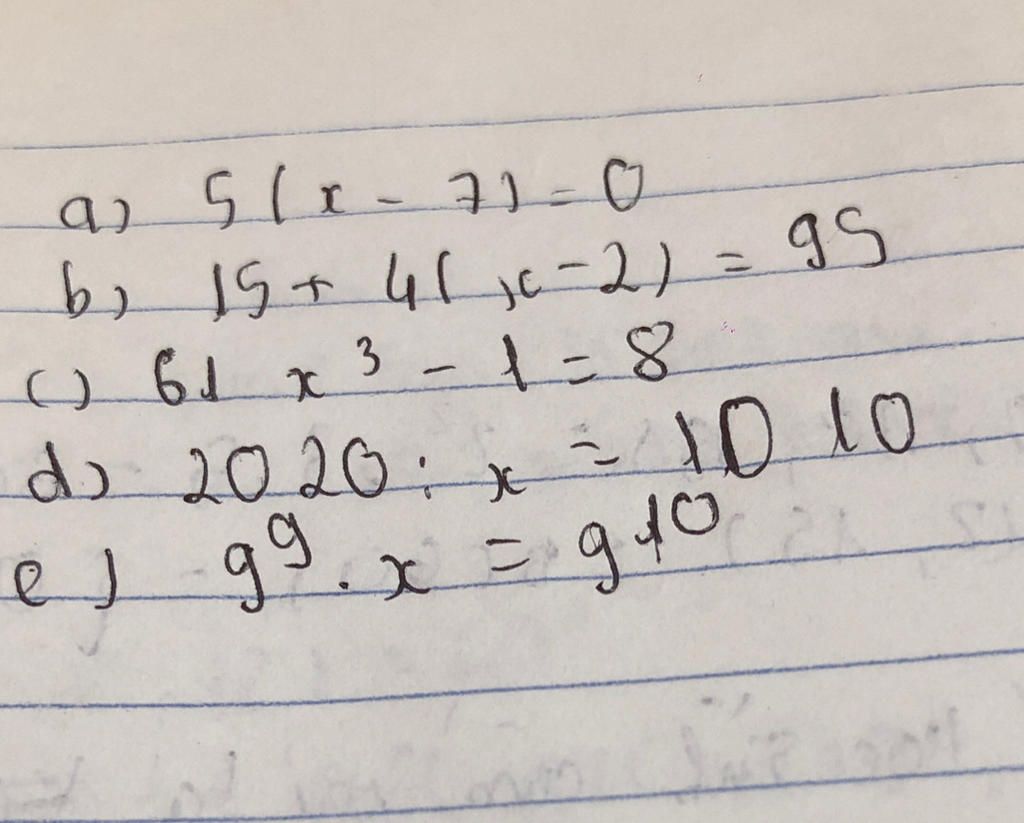 a) 5(x - 7) = 0
b) 15 + 4(x - 2) = 95
c) 61 x³ - 1 = 8
d) 2020 : x = 1010
e) 9⁹ . x = 9¹⁰